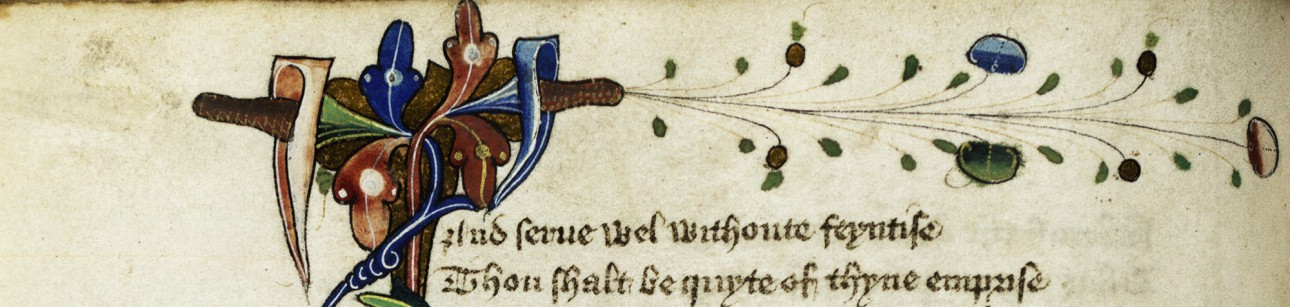 And serue wel withoute feyntise
Thou shalt be quyte of thyne emprise